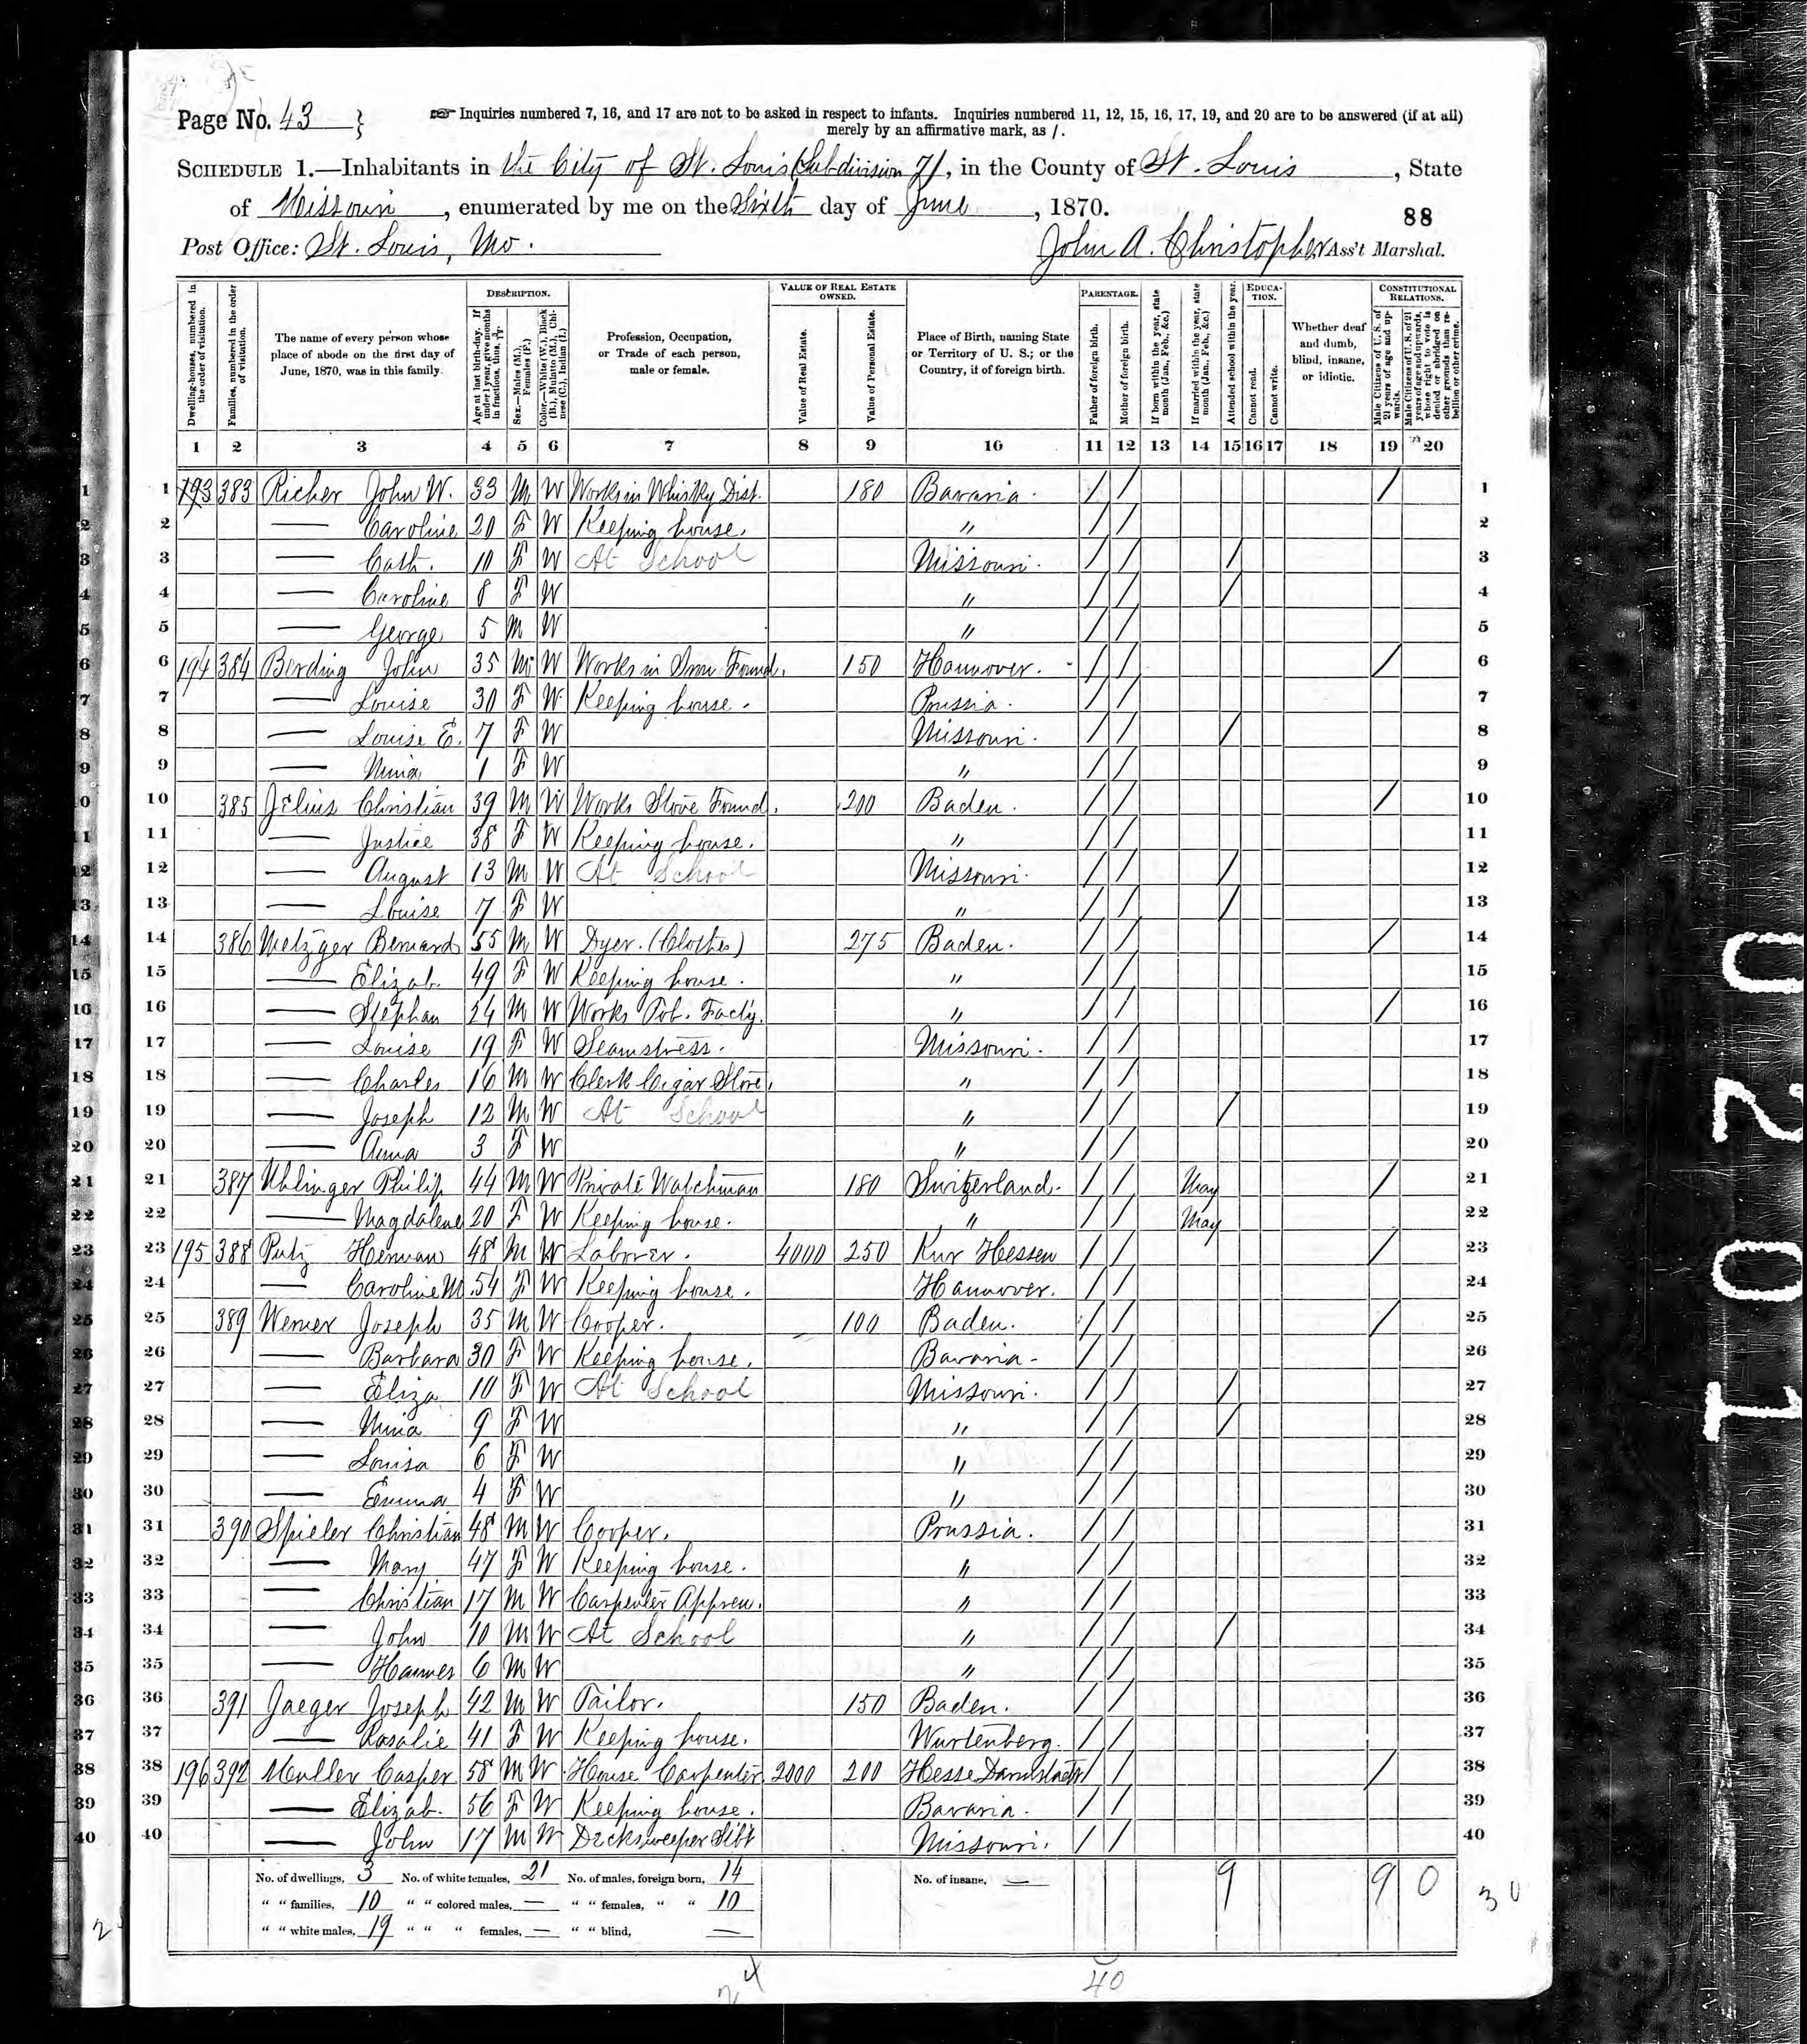 Page No. 43 }
Inquiries numbered 7, 16, and 17 are not to be asked in respect to infants. Inquiries numbered 11, 12, 15, 16, 17, 19, and 20 are to be answered (if at all)
merely by an affirmative mark, as /.
SCHEDULE 1.—Inhabitants in the City of St. Louis (Subdivision 7), in the County of St. Louis, State
of Missouri, enumerated by me on the Sixth day of June, 1870.
88
Post Office: St. Louis, Mo.
John A. Christopher, Ass't Marshal.
Dwelling-houses, numbered in the order of visitation.
Families, numbered in the order of visitation.
The name of every person whose place of abode on the first day of June, 1870, was in this family.
DESCRIPTION.
Age at last birth-day. If under 1 year, give months in fractions, thus, 3/12.
Sex.—Males (M.), Females (F.)
Color.—White (W.), Black (B.), Mulatto (M.), Chinese (C.), Indian (I.)
Profession, Occupation, or Trade of each person, male or female.
VALUE OF REAL ESTATE OWNED.
Value of Real Estate.
Value of Personal Estate.
Place of Birth, naming State or Territory of U. S.; or the Country, if of foreign birth.
PARENTAGE.
Father of foreign birth.
Mother of foreign birth.
If born within the year, state month (Jan., Feb., &c.)
If married within the year, state month (Jan., Feb., &c.)
Attended school within the year.
EDUCATION.
Cannot read.
Cannot write.
Whether deaf and dumb, blind, insane, or idiotic.
CONSTITUTIONAL RELATIONS.
Male Citizens of U. S. of 21 years of age and upwards.
Male Citizens of U. S. of 21 years of age and upwards, whose right to vote is denied or abridged on other grounds than rebellion or other crime.
1 2 3 4 5 6 7 8 9 10 11 12 13 14 15 16 17 18 19 20
1 193 383 Richer John W. 33 M W Works in Whisky Dist. 180 Bavaria. / / / 1
2 — Caroline 20 F W Keeping house. " / / 2
3 — Cath. 10 F W At School Missouri. / / / 3
4 — Caroline 8 F W " / / / 4
5 — George 5 M W " / / 5
6 194 384 Berding John 35 M W Works in Iron Found. 150 Hannover. / / / 6
7 — Louise 30 F W Keeping house. Prussia. / / 7
8 — Louise E. 7 F W Missouri. / / / 8
9 — Mina 1 F W " / / 9
10 385 Jelius Christian 39 M W Works Stove Found. 200 Baden. / / / 10
11 — Justice 38 F W Keeping house. " / / 11
12 — August 13 M W At School Missouri. / / / 12
13 — Louise 7 F W " / / / 13
14 386 Metzger Bernard 55 M W Dyer. (Clothes) 275 Baden. / / / 14
15 — Elizab. 49 F W Keeping house. " / / 15
16 — Stephan 24 M W Works Tob. Facty. " / / / 16
17 — Louise 19 F W Seamstress. Missouri. / / 17
18 — Charles 16 M W Clerk Cigar Store. " / / 18
19 — Joseph 12 M W At School " / / / 19
20 — Anna 3 F W " / / 20
21 387 Uhlinger Philip 44 M W Private Watchman 180 Switzerland. / / May / 21
22 — Magdalene 20 F W Keeping house. " / / May 22
23 195 388 Putz Herman 48 M W Laborer. 4000 250 Kur Hessen / / / 23
24 — Caroline M. 54 F W Keeping house. Hannover. / / 24
25 389 Werner Joseph 35 M W Cooper. 100 Baden. / / / 25
26 — Barbara 30 F W Keeping house. Bavaria. / / 26
27 — Eliza 10 F W At School Missouri. / / / 27
28 — Mina 9 F W " / / / 28
29 — Louisa 6 F W " / / 29
30 — Emma 4 F W " / / 30
31 390 Spieler Christian 48 M W Cooper. Prussia. / / 31
32 — Mary 47 F W Keeping house. " / / 32
33 — Christian 17 M W Carpenter Appren. " / / 33
34 — John 10 M W At School " / / / 34
35 — Hannes 6 M W " / / 35
36 391 Jaeger Joseph 42 M W Tailor. 150 Baden. / / 36
37 — Rosalie 41 F W Keeping house. Wurtenberg. / / 37
38 196 392 Muller Casper 58 M W House Carpenter 2000 200 Hesse Darmstadt / / / 38
39 — Elizab. 56 F W Keeping house. Bavaria. / / 39
40 — John 17 M W Decksweeper Stbt Missouri. / / 40
No. of dwellings, 3 No. of white females, 21 No. of males, foreign born, 14 No. of insane, — 9 9 0
" " families, 10 " " colored males, — " " females, " " 10
" " white males, 19 " " " females, — " " blind, —
30
24
40
1020